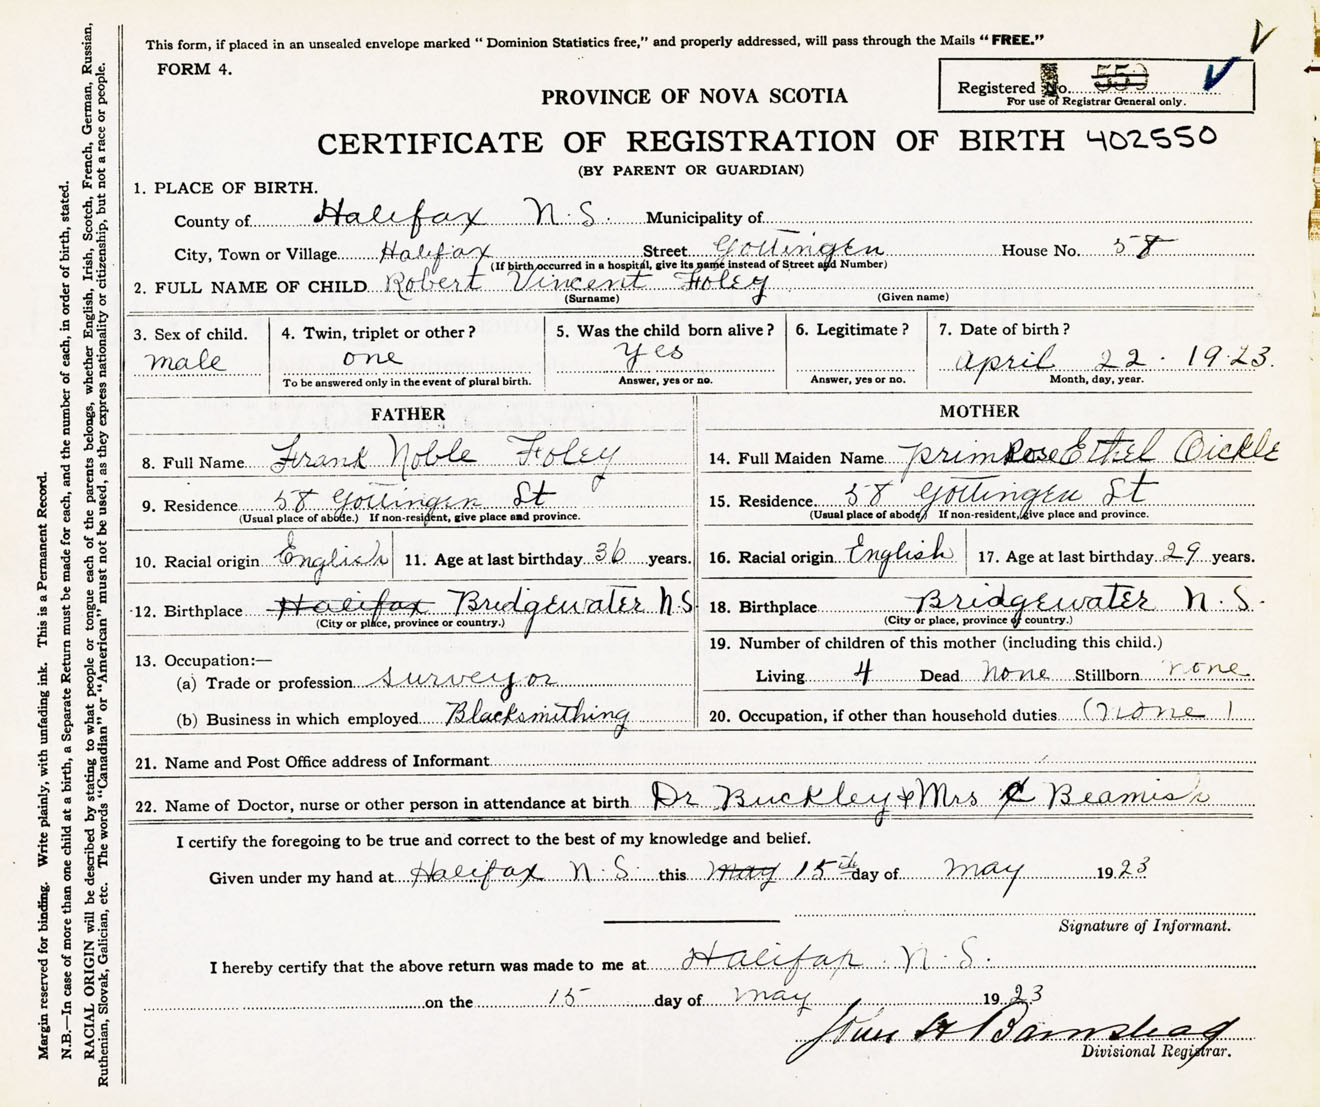 This form, if placed in an unsealed envelope marked “ Dominion Statistics free,” and properly addressed, will pass through the Mails “ FREE.”
FORM 4.
Registered No. 550
For use of Registrar General only.
PROVINCE OF NOVA SCOTIA
CERTIFICATE OF REGISTRATION OF BIRTH 402550
(BY PARENT OR GUARDIAN)
1. PLACE OF BIRTH.
County of Halifax N.S. Municipality of
City, Town or Village Halifax Street Gottingen House No. 58
(If birth occurred in a hospital, give its name instead of Street and Number)
2. FULL NAME OF CHILD Robert Vincent Foley
(Surname) (Given name)
3. Sex of child. 4. Twin, triplet or other? 5. Was the child born alive? 6. Legitimate? 7. Date of birth?
male one yes april 22. 1923.
To be answered only in the event of plural birth. Answer, yes or no. Answer, yes or no. Month, day, year.
FATHER MOTHER
8. Full Name Frank Noble Foley 14. Full Maiden Name primRose Ethel Oickle
9. Residence 58 Gottingen St 15. Residence 58 Gottingen St
(Usual place of abode.) If non-resident, give place and province. (Usual place of abode.) If non-resident, give place and province.
10. Racial origin English 11. Age at last birthday 36 years. 16. Racial origin English 17. Age at last birthday 29 years.
12. Birthplace Halifax Bridgewater N.S 18. Birthplace Bridgewater N.S.
(City or place, province or country.) (City or place, province or country.)
13. Occupation:— 19. Number of children of this mother (including this child.)
(a) Trade or profession surveyor Living 4 Dead none Stillborn none.
(b) Business in which employed Blacksmithing 20. Occupation, if other than household duties (none)
21. Name and Post Office address of Informant
22. Name of Doctor, nurse or other person in attendance at birth Dr Buckley & Mrs Beamish
I certify the foregoing to be true and correct to the best of my knowledge and belief.
Given under my hand at Halifax N.S. this May 15th day of may 1923
Signature of Informant.
I hereby certify that the above return was made to me at Halifax. N.S.
on the 15 day of may 1923
John H Barnstead
Divisional Registrar.
Margin reserved for binding. Write plainly, with unfading ink. This is a Permanent Record.
N.B.—In case of more than one child at a birth, a Separate Return must be made for each, and the number of each, in order of birth, stated.
RACIAL ORIGIN will be described by stating to what people or tongue each of the parents belongs, whether English, Irish, Scotch, French, German, Russian,
Ruthenian, Slovak, Galician, etc. The words “Canadian” or “American” must not be used, as they express nationality or citizenship, but not a race or people.